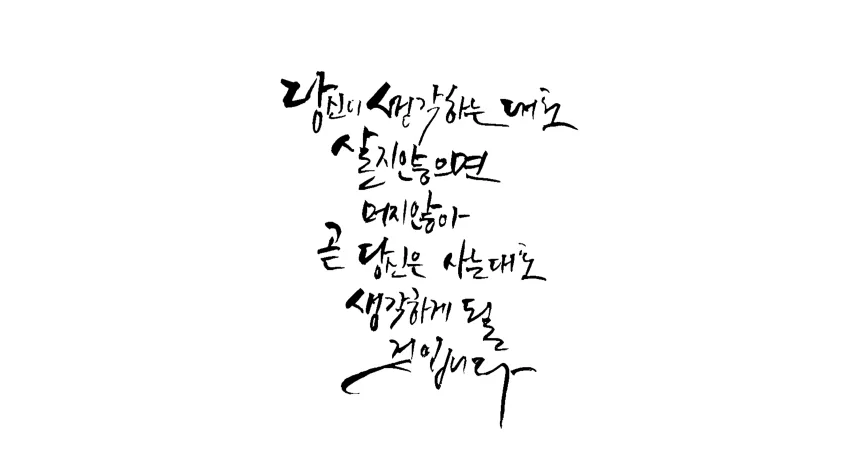 당신이 생각하는 대로
살지않으면
머지않아
곧 당신은 사는대로
생각하게 될
것입니다